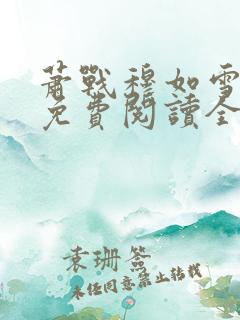 萧戰穆如雪
免費閱讀全
袁珊簽
未任同意禁止转载